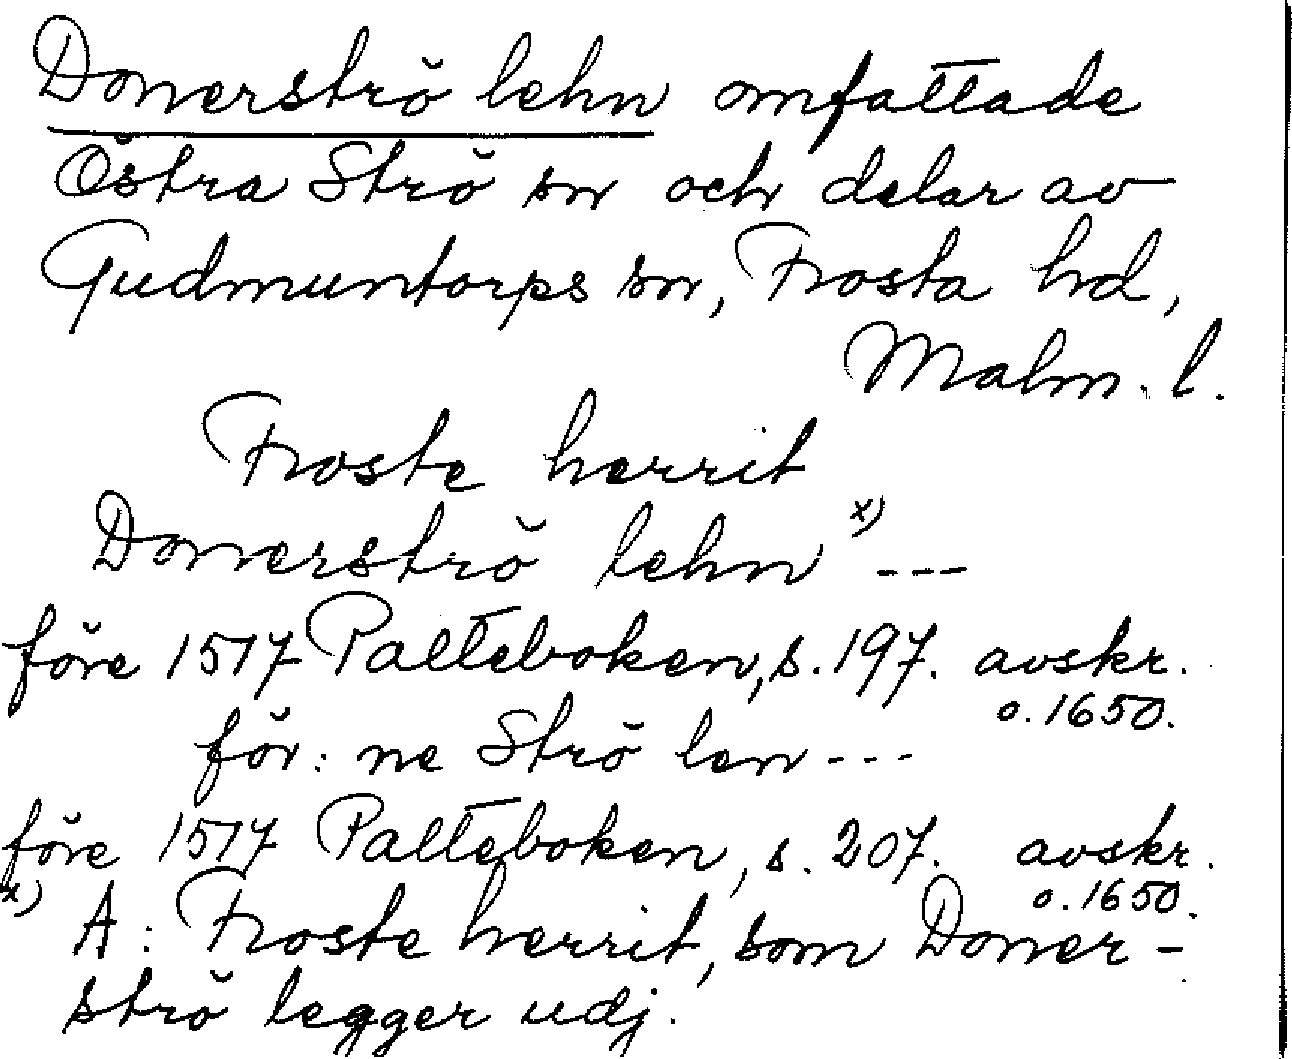 Donerströ lehn omfattade
Östra Strö sn och delar av
Gudmuntorps sn, Frosta hd,
Malm. l.
Froste herrit
Donerströ lehn x) ---
före 1517 Palteboken, s. 197. avskr.
o. 1650.
för: ne Strö len ---
före 1517 Palteboken, s. 207. avskr.
o. 1650.
x) A: Froste herrit, som Doner-
strö legger udj.